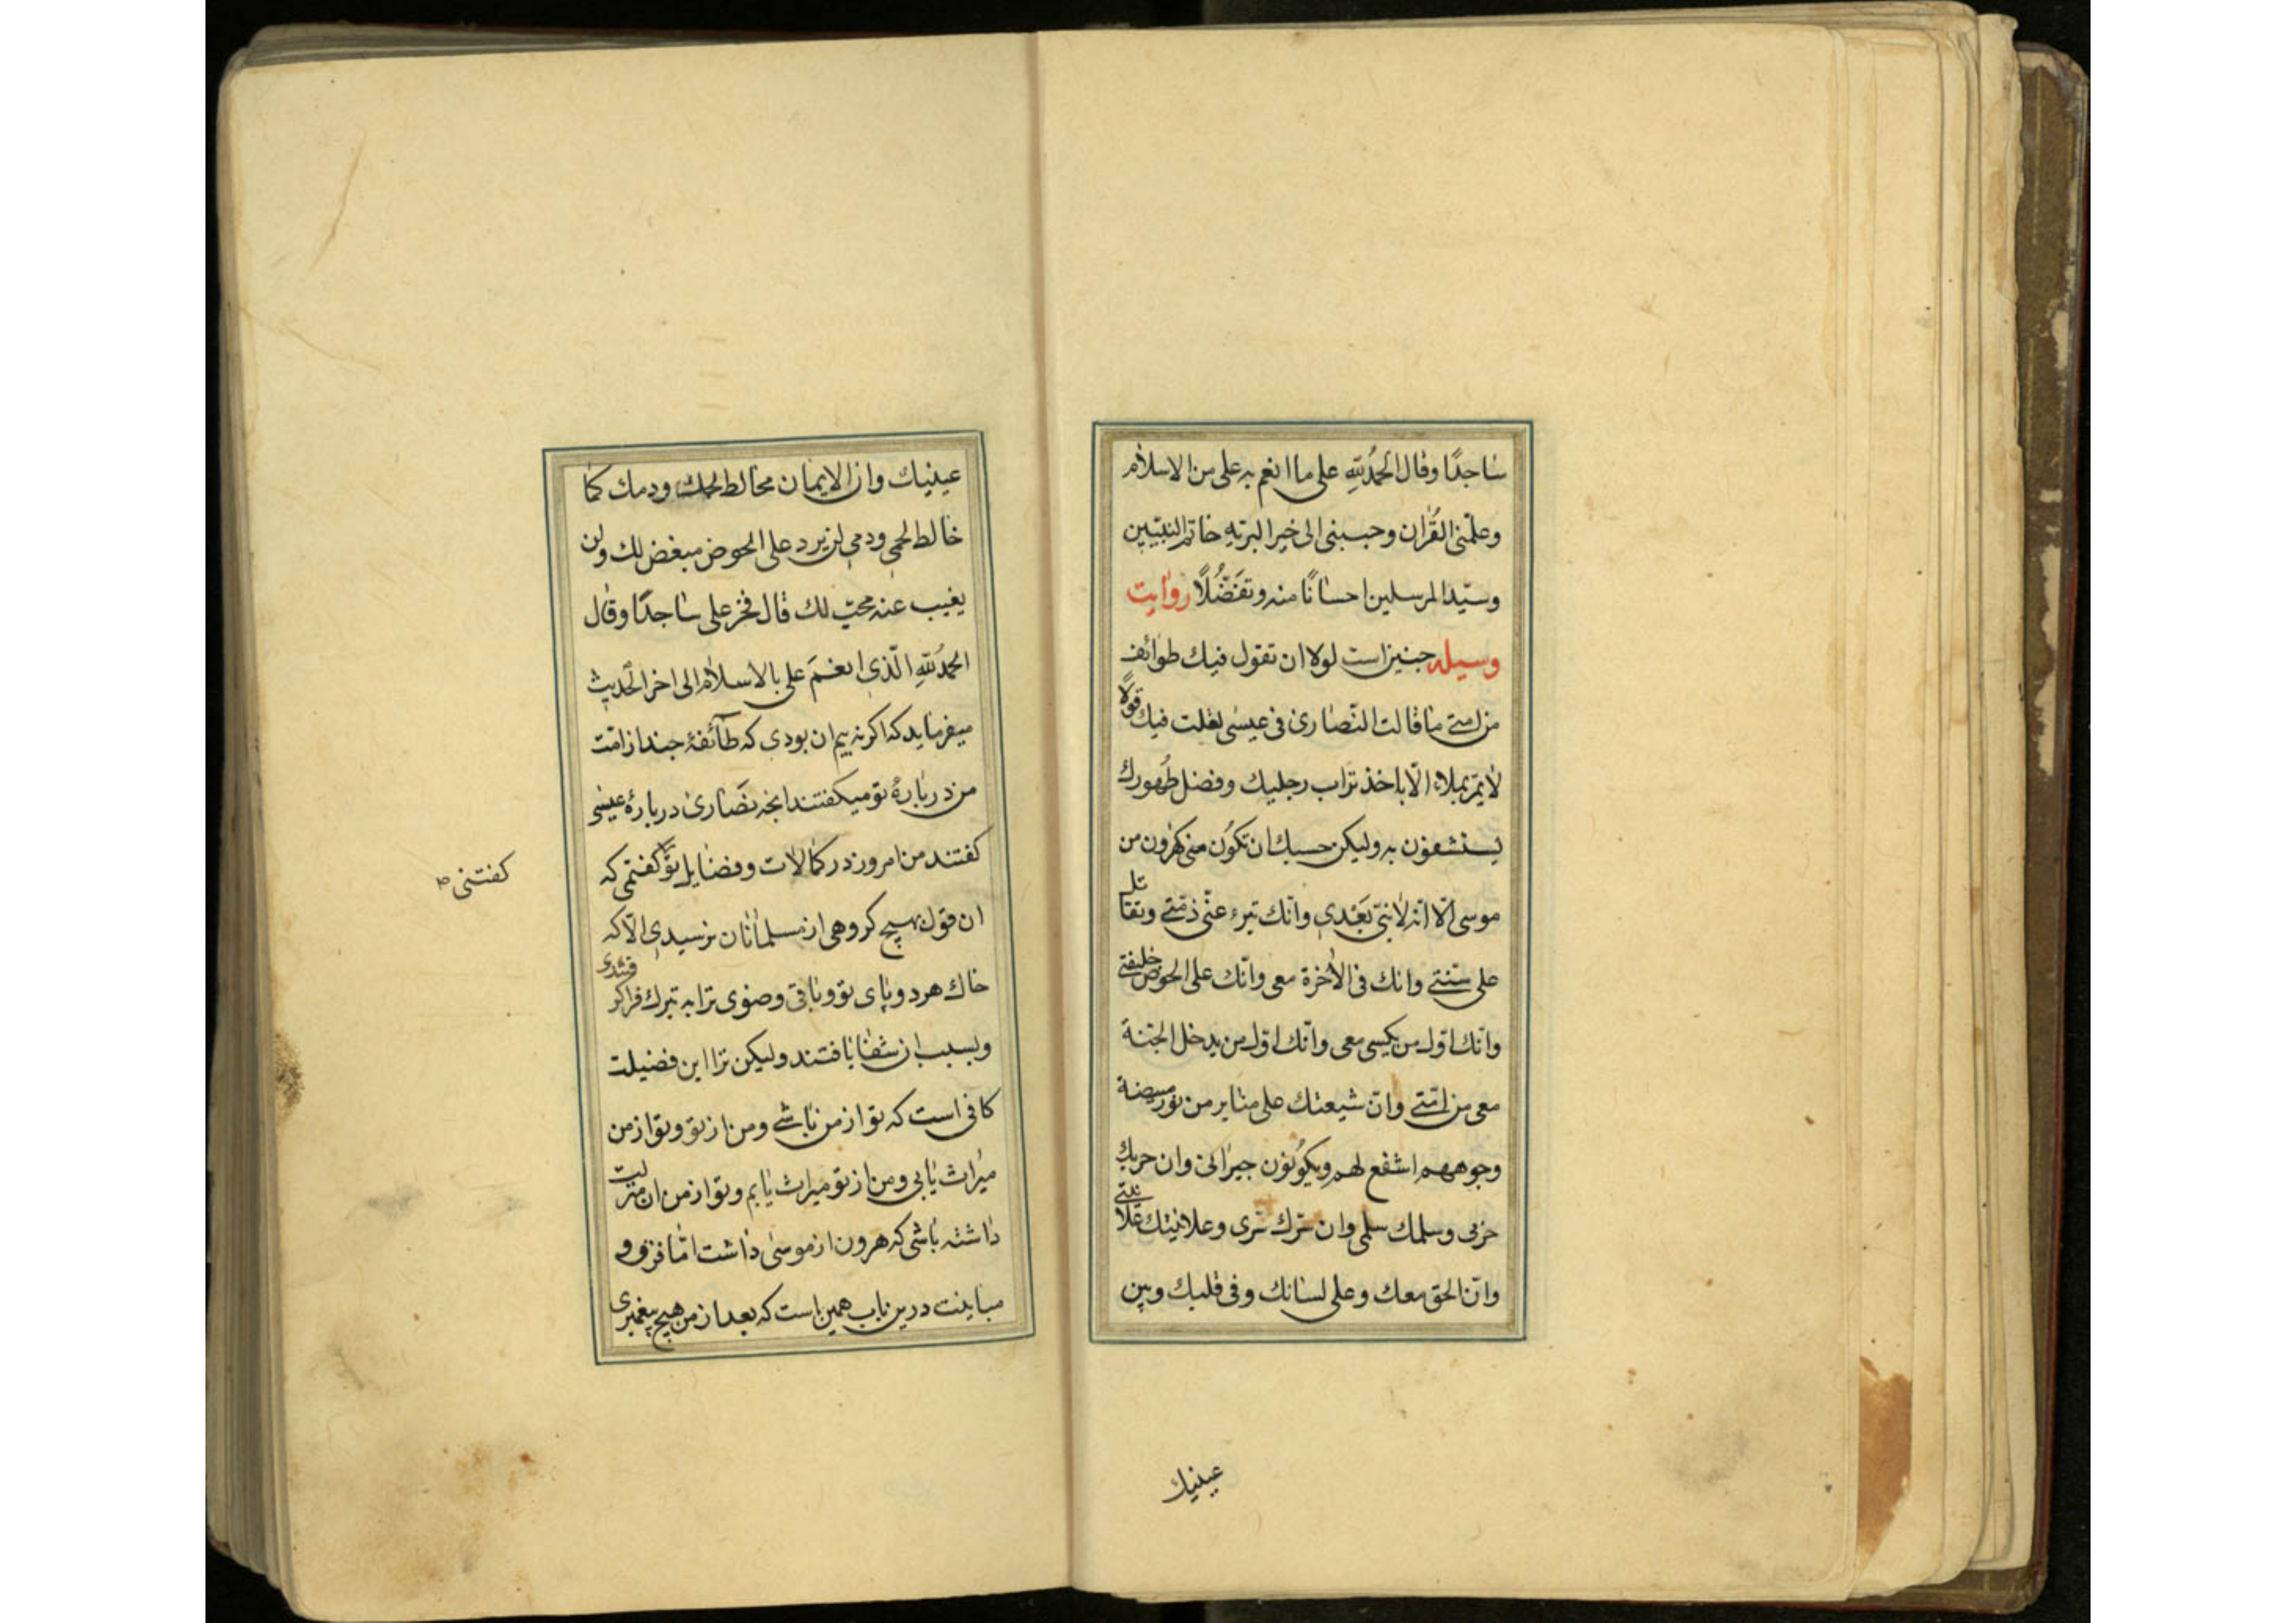 ساجدًا وقال الحمدُ لله على ما انعم به على من الاسلام
وعلّمنى القُرآن وحببنى الى خير البريّه خاتم النبيّين
وسيّد المرسلين احسانًا منه وتفَضُّلًا روایت
وسیله چنین است لولا ان تقول فيك طوائف
من امتى ما قالت النّصارى فى عيسى لقلت فيك قولًا
لا يمرّ بملاء الّا باخذ تراب رجليك وفضل طُهورك
يستشفون به وليكن حسبك ان تكُون منى كهرون من
موسى الّا انّه لا نبىّ بَعْدى وانّك تبرء عنّى ذمّتى وتقاتل
على سنّتى وانك فى الآخرة معى وانّك على الحوض خليفتى
وانّك اوّل من يكسى معى وانّك اوّل من يدخل الجنّة
معى من امّتى وانّ شيعتك على منابر من نور مبيضة
وجوههم اشفع لهم ويكُونون جيرانى وان حربك
حربى وسلمك سلمى وان سّرك سّرى وعلانيتك علانيتى
وانّ الحق معك وعلى لسانك وفى قلبك وبين
عينيك
عينيك وان الايمان مخالط لحمك ودمك كما
خالط لحمى ودمى لن يرد على الحوض مبغض لك ولن
يغيب عنه محبّ لك قال فخر على ساجدًا وقال
الحمدُ لله الّذى انعَمَ على بالاسلام الى اخر الحَديث
میفرماید که اکر نه بیم ان بودی که طآئفهٔ چند از امّت
من دربارهٔ تو میکفتند انچه نصَارى دربارهٔ عیسی
کفتند من امروز در کمالات وفضایل تو کفتمی که
ان قول بهیچ کروهی از مسلمانان نرسیدی الّا که
خاك هر دو پای تو وباقی وضوی ترا به تبرك فرا کرفتندی
وبسبب ان شفا یافتند ولیکن ترا این فضیلت
کافی است که تو از من باشے ومن از تو وتو از من
میراث یابی ومن از تو میراث یابم وتو از من ان منزلت
داشته باشی که هرون از موسی داشت امّا فرق و
مباینت درین باب همین است که بعد از من هیچ پیغمبری
کفتنی